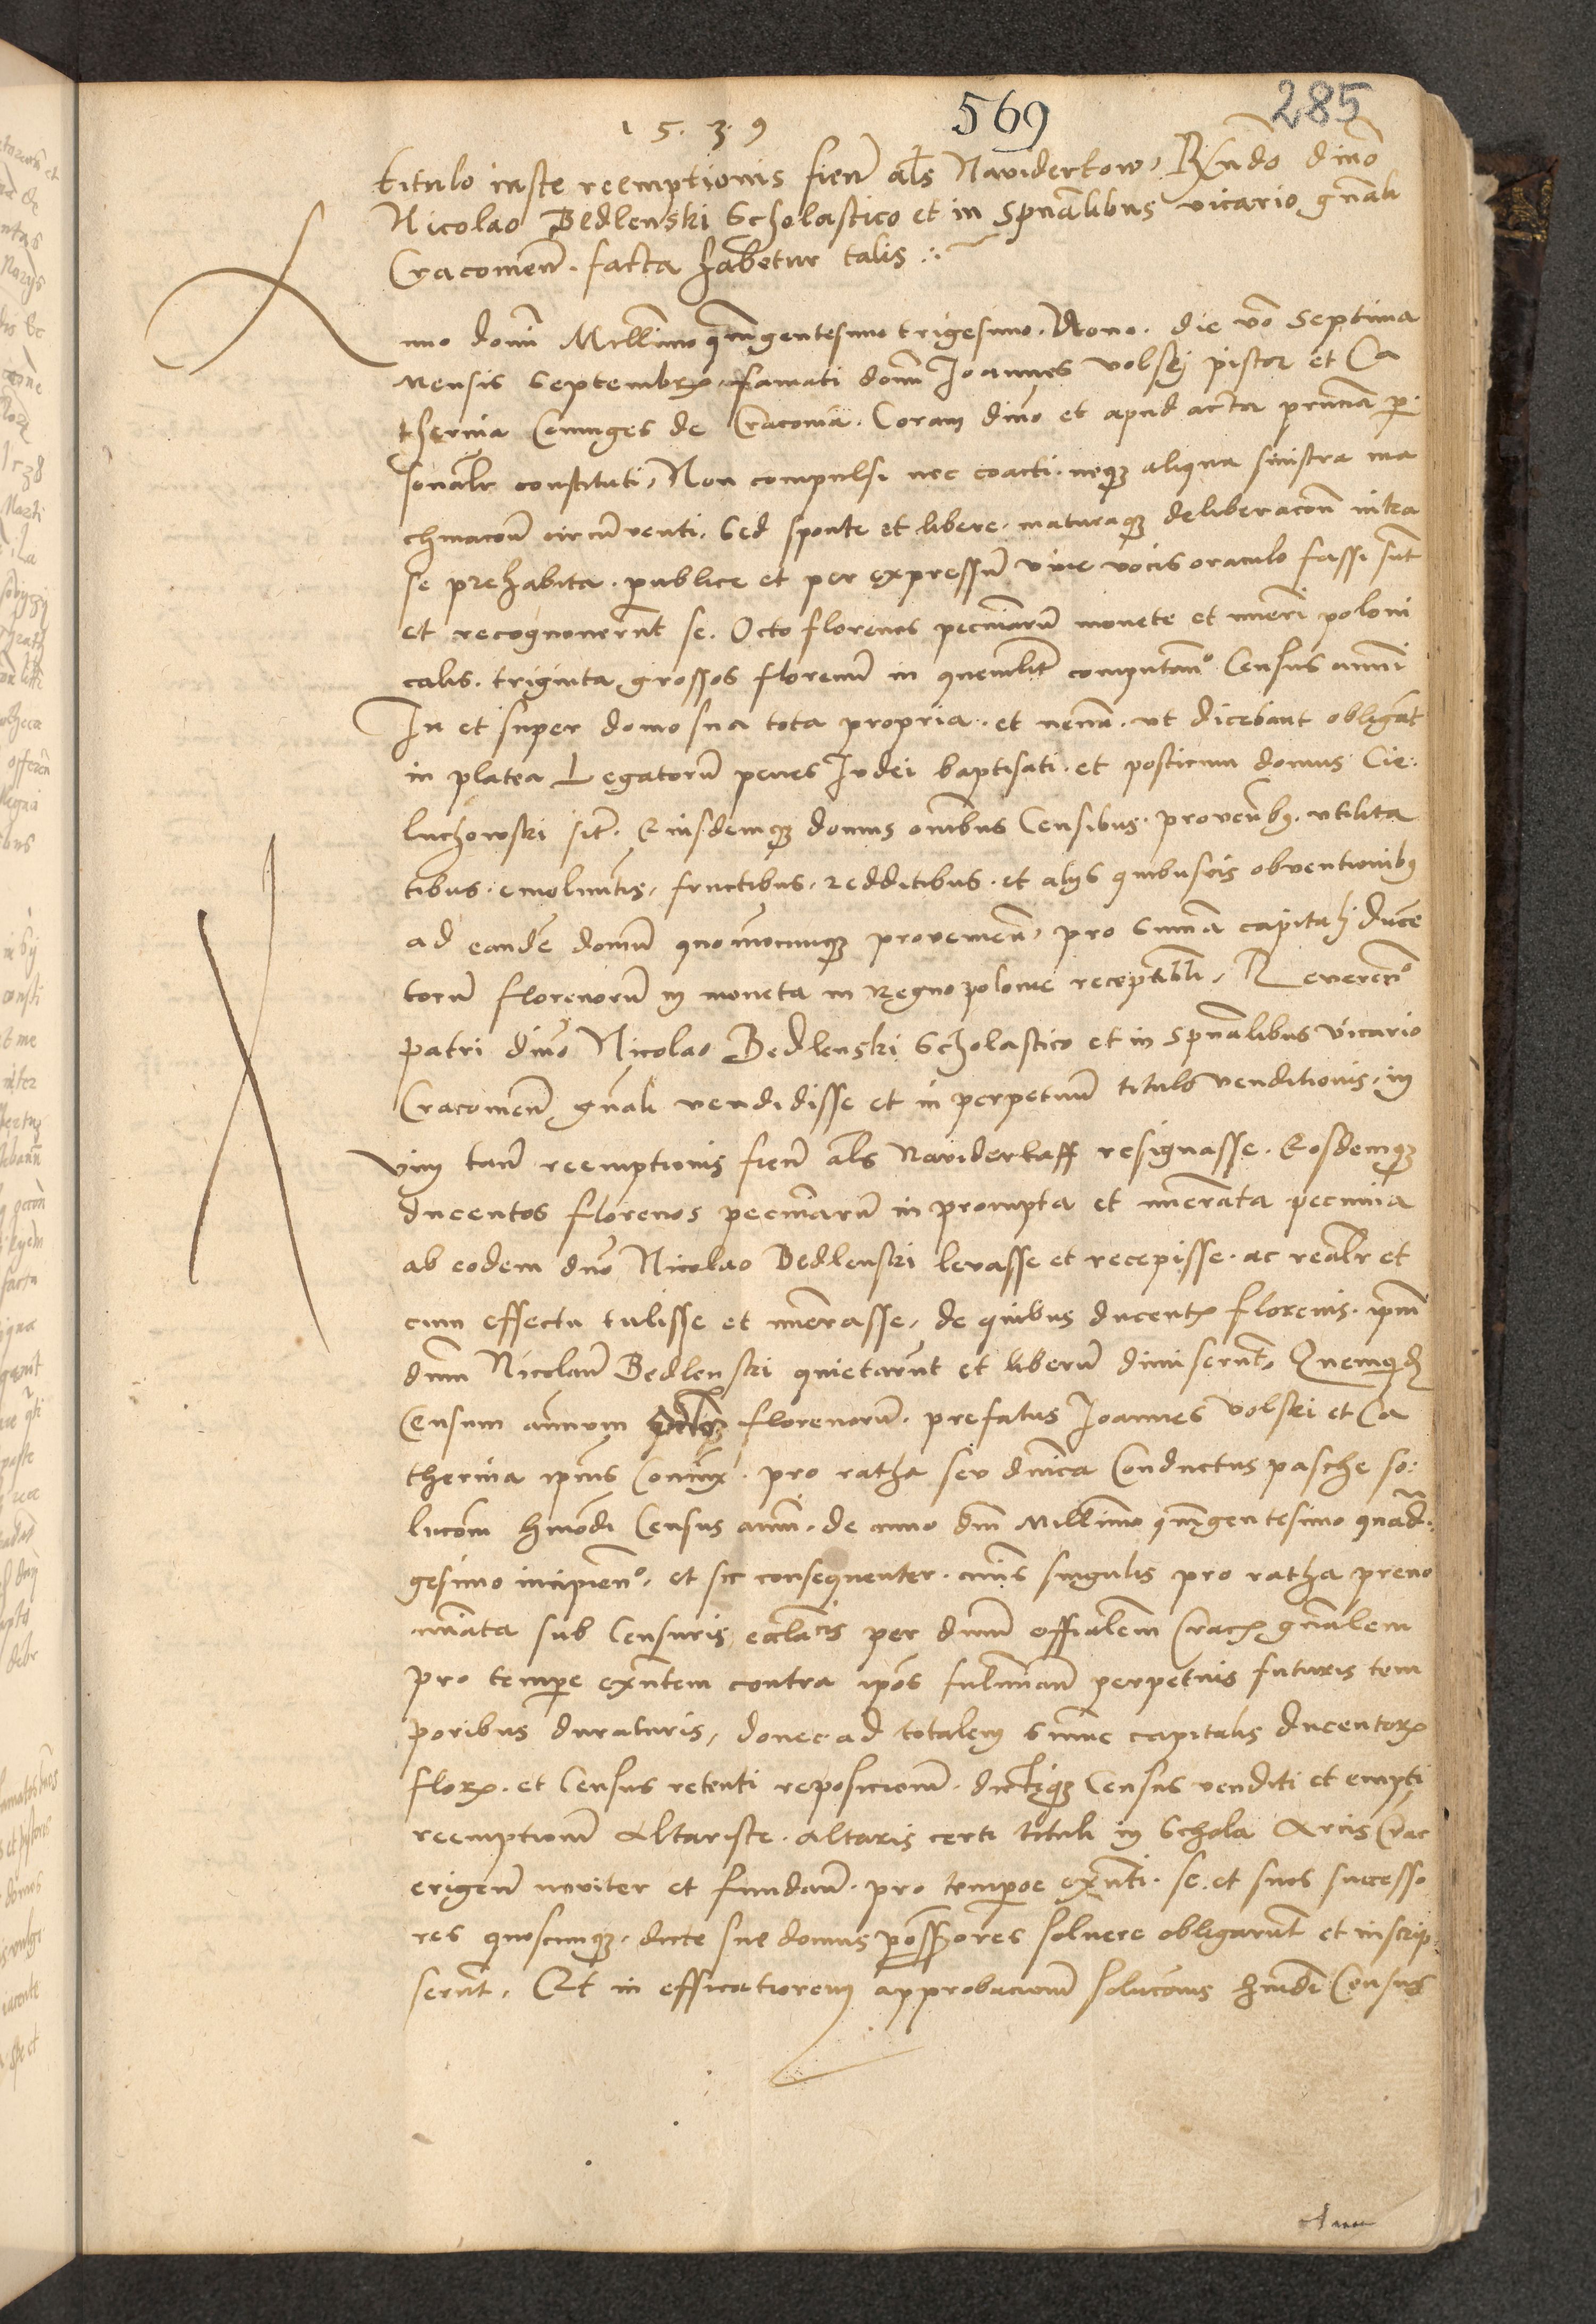 1 5. 3. 9
569
285
titulo iuste reemptionis fień als Navidertow, Rṽndo dn̄o
Nicolao Bedlenski Scholastico et in Spūalibus vicario gn̄ali
Cracovień. facta habetur talis
Anno domī Millīmo quīgentesimo trigesimo. Nono. die vō Septima
Mensis Septembrꝭ. famati domī Ioannes Volsky pistor et Ca
therina Coniuges de Cracovia. Coram dn̄o et apud acta pn̄cia p̱
sonalr̄ constituti, Non compulsi nec coacti. neqꝫ aliqua sinistra ma
chinacōn circūventi, Sed sponte et libere. maturaqꝫ deliberacōn intra
se prehabita. publice et per expressū vive vocis oraculo fassi sūt
et recognoverūt se. Octo florenos pecūiarū monete et nūeri poloni
calis. triginta grossos florenū in quemlibt computanᵒ Census annui
In et super domo sua tota propria. et neminī. ut dicebant obligat̄
in platea Legatorū penes Iudei baptisati. et posticum domus Cie
luchowski sit̄. Eiusdemqꝫ domus omībus Censibus. proventibꝫ. utilita
tibus. emolumētis, fructibus, redditibus. et alijs quibusvis obventionibꝫ
ad eandē domū quomōcumqꝫ provenień, pro Summa capitali duce
torū florenorū in moneta in Regno polonie receptibili, Reverenᵒ
patri dn̄o Nicolao Bedlenski Scholastico et in Spūalibus Vicario
Cracovień gn̄ali vendidisse et in perpetuum titulo venditionis, in
vim tan̄ reemptionis fień als Naviderkaff resignasse. Eosdemqꝫ
ducentos florenos pecūiarū in prompta et nūerata pecunia
ab eodem dn̄o Nicolao Bedlenski levasse et recepisse. ac realr̄ et
cum effectu tulisse et nūerasse, de quibus ducentꝭ florenis. ipm̄
dnm̄ Nicolaū Bedlenski quietarūt et liberū dimiserūt. Quemquidꝫ
Censum annuum florenorū. prefatus Ioannes Volski et Ca
therina ipius Coniunx. pro ratha seu dn̄ica Conductus pasche so:
lucōni hm̄odi Census annui. de anno dn̄i Millīmo quīgentesimo quadra
gesimo incipienᵒ. et sic consequenter. annis singulis pro ratha preno
mīata sub Censuris eccl̄iasticis per dnm̄ officialem Cracꝭ gn̄alem
pro tempe exn̄tem contra ipōs fulminań perpetuis futuris tem
poribus duraturis, donec ad totalem Summe capitalis ducentorꝭ
florꝭ. et Census retenti reposicionē. dictiqꝫ Census venditi et empti
reemptionē Altariste. altaris certi tituli in Schola Arcis Crac
erigeń noviter et fundań. pro tempore exn̄ti. se. et suos successo
res quoscumqꝫ. dicte sue domus possessores solvere obligarūt et inscrip
serūt, Et in efficatiorem approbacionē solucōnis hm̄odi Census